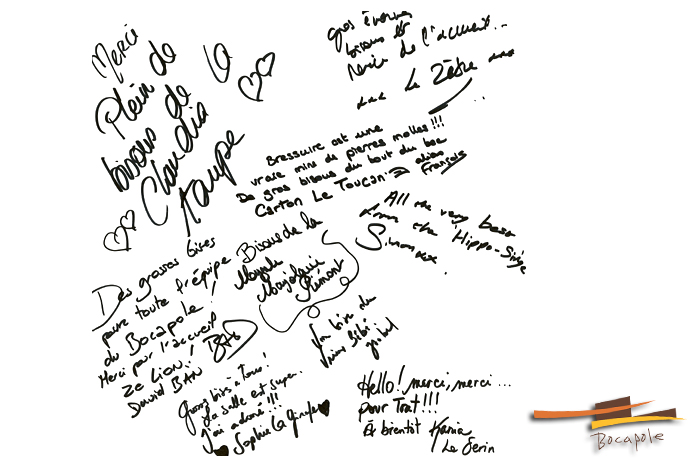 Merci
Plein de
bisous de la
Claudia
taupe
gros énormes
bisous et
merci de l'accueil...
... Le Zèbre ...
Bressuire est une
vraie mine de pierres molles!!!
De gros bisous du bout du bec
Carton Le Toucan alias
François
All the very best
from the Hippo-Singe
Simon xx.
Des grosses bises
pour toute l'équipe
du Bocapole !
Merci pour l'accueil
Ze Lion!
David BAN
Bisous de la
Magali
Marjolaine
Piémont
bise du
vieux Bibi
Gros bises à Tous!
La salle est super.
J'ai adoré!!!
Sophie La Girafe
Hello! merci, merci...
pour Tout!!!
Et bientôt Kania
Le Serin
Bocapole